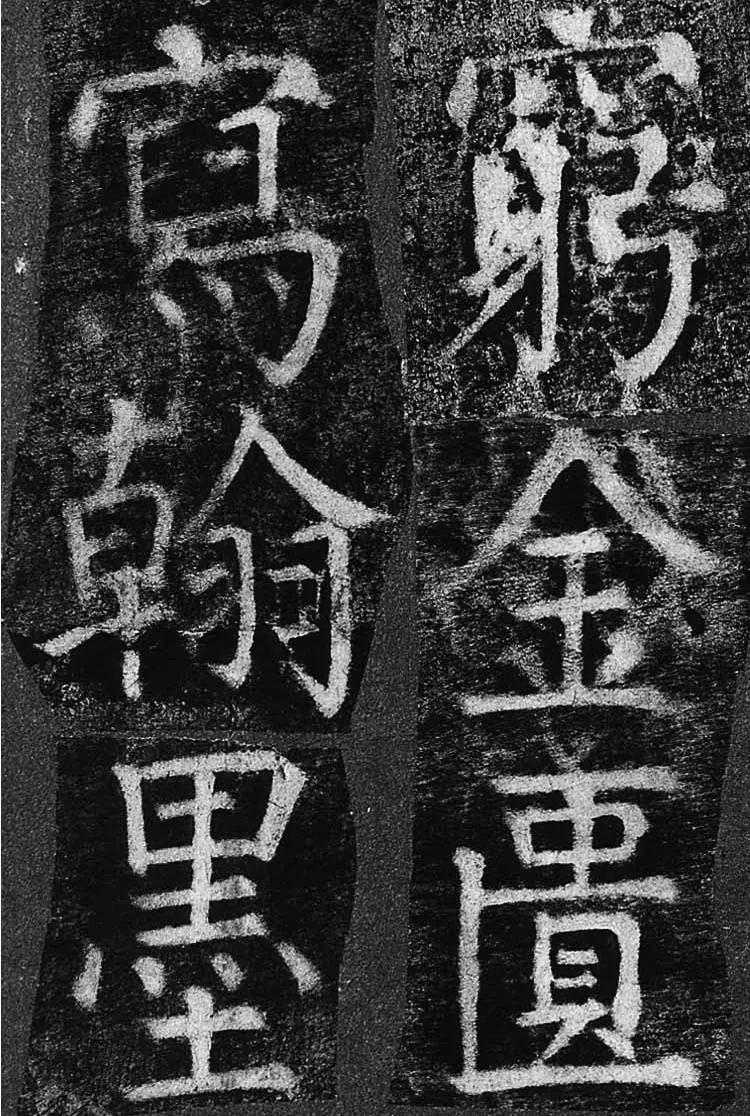 窮金匱
寫翰墨